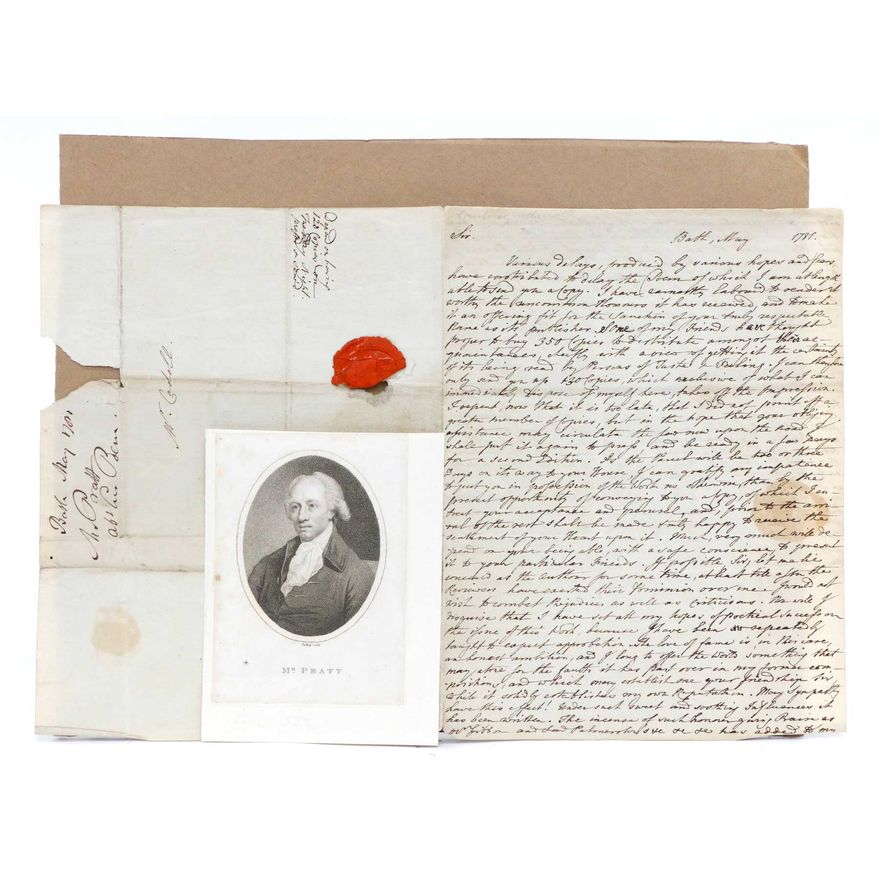 Depend on having
120 Copies
Bath May 1781
Mr. Pratt
abt his Poem.
Mr. Cadell.
MR. PRATT
Sir. Bath, May 1781.
Various delays, produced by various hopes and fears,
have contributed to delay the Poem of which I am at length
able to send you a Copy. I have earnestly labour'd to render it
worthy the uncommon Honours it has received, and to make
it an offering fit for the Sanction of your truly respectable
Name as its Publisher. Some of my Friends have thought
proper to buy 350 Copies to distribute amongst their ac-
quaintances chiefly with a view of getting it the
of its being read by Persons of Taste & Feeling; I can therefore
only send you up 120 Copies, which exclusive of what I can
immediately dispose of myself here, takes off the Impression.
I repent, now that it is too late, that I did not print off a
greater number of Copies, but in the hope that your obliging
assistance may circulate the few now upon the road I
shall put it again to press and be ready in a few Days
for a second Edition. As the Parcel will be two or three
Days on its way to your House, I can gratify my impatience
to put you in Possession of the Work no otherwise, than by the
present opportunity of conveying to you a Copy, of which I en-
treat your acceptance and perusal, and, prior to the arri-
val of the rest shall be made truly happy to receive the
sentiment of your Heart upon it. Much, very much will de-
pend on your being able, with a safe conscience to present
it to your particular Friends. If possible Sir, let me be
concealed as the Author for some time, at least till after the
Reviewers have exerted their over me. I would not
wish to combat Prejudices as well as Criticisms. Nor will I
disguise that I have set all my hopes of poetical success on
the issue of this Work, because I have been repeatedly
taught to expect approbation. The love of fame is in this case,
an honest ambition, and I long to offer the World something that
may atone for the faults it has past over in my former com-
positions, and which may establish me your friendship Sir
while it solidly establishes my own Reputation. May Sympathy
have this effect! Under such sweet and soothing Influences it
has been written. The incense of such honour-giving Praise as
Mr. Gibbon and Lord Palmerston &c &c &c has added to my